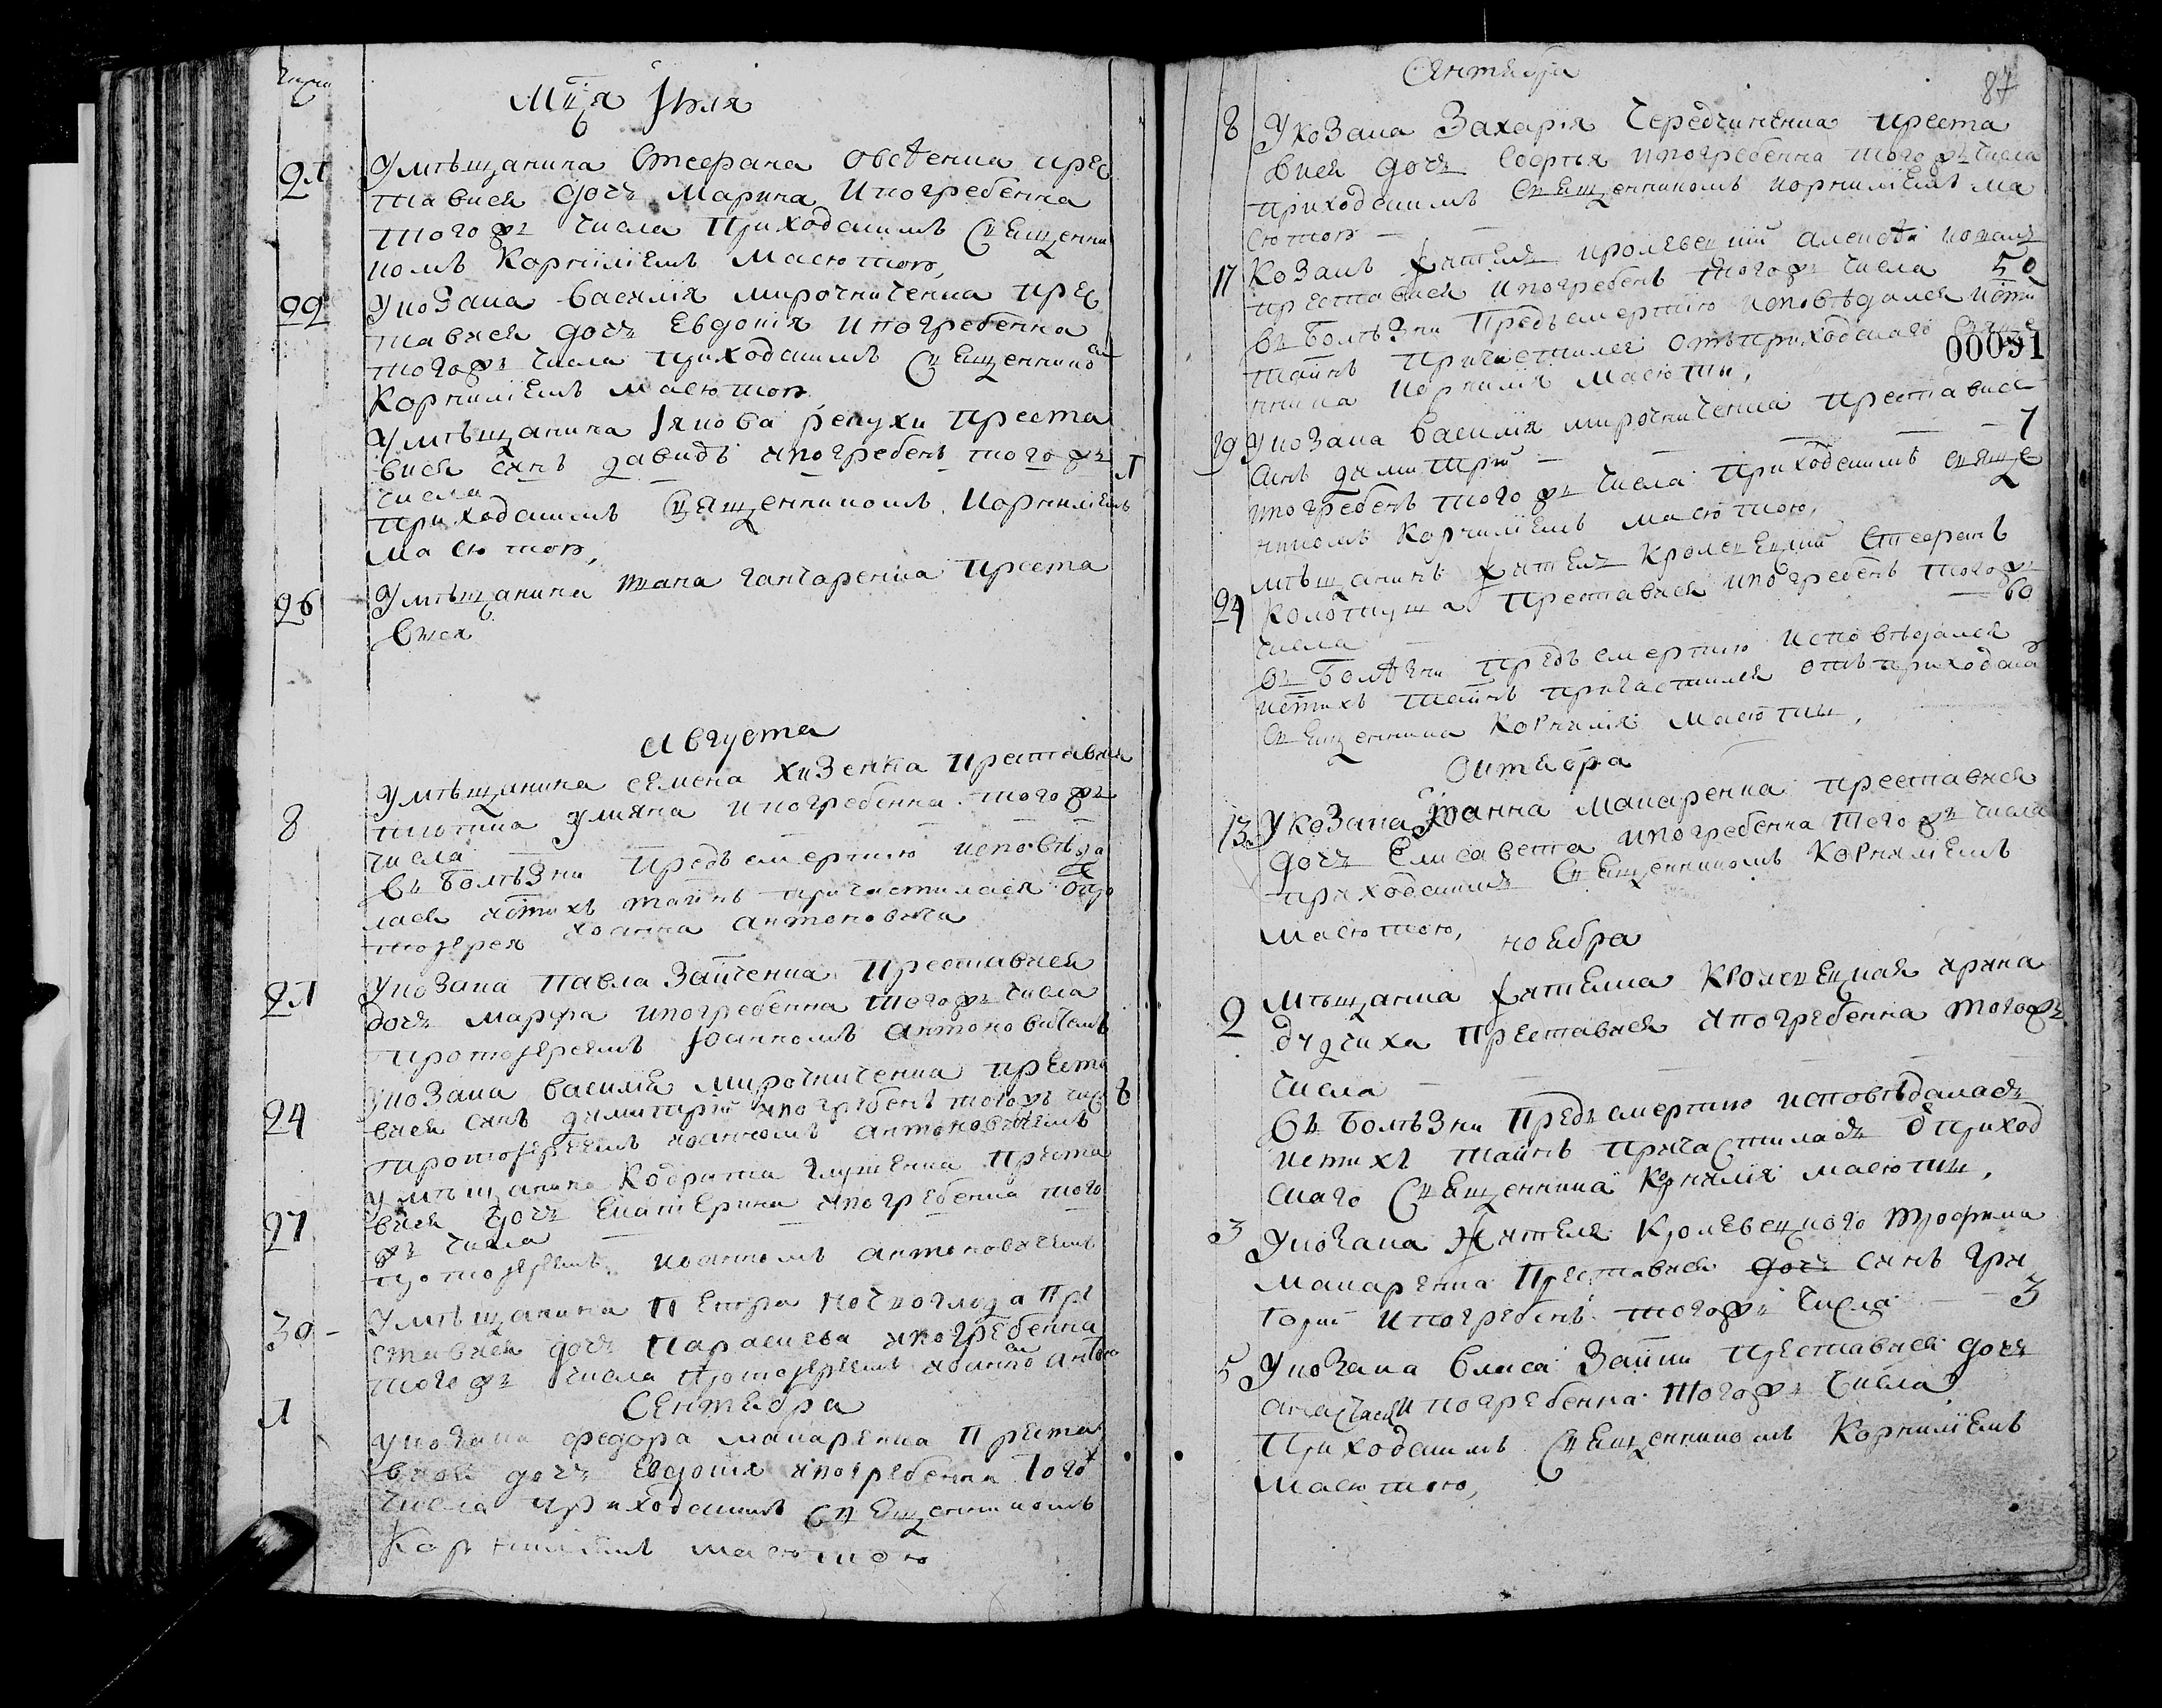 число
Мца Июля
21
Умѣщанина Стефана Овсѣенка прес
тависа дочъ Марина ипогребенна
тогожъ числа приходскимъ Священни
комъ Корнилиемъ Масютою,
22
Укозака Василия Мирошниченка прес
тависа дочъ Евдокия ипогребенна
тогожъ числа приходскимъ Священнико
Корнилиемъ Масютою
Умѣщанина Якова Репухи преста
виса синъ Давидъ ипогребенъ тогожъ 1
числа
приходскимъ Священникомъ Корнилиемъ
Масютою,
26
Умѣщанина Ивана Гончаренка преста
виса
Августа
Умѣщанина Семена Хизенка преставися
8
тиотика Улияна ипогребенна тогожъ
числа
въ болѣзни предъ смертию исповѣда
лася истихъ таинъ причастилася отпро
тоиерея Иоанна Антоновича
21
Укозака Павла Зайченка преставися
дочъ Марфа ипогребенна тогожъ числа
протоиереемъ Иоанномъ Антоновичемъ
24
Укозака Василия Мирошниченка преста 8
виса синъ Димитрий ипогребенъ тогожъ чис
протоиереемъ Иоанномъ Антоновичемъ
Умѣщанина Кодрата Глущенка преста
27
виса дочъ Екатерина ипогребенна того
жъ числа
протоиереемъ Иоанномъ Антоновичемъ
30
Умѣщанина Петра пре
ставися дочъ Параскева ипогребенна
тогожъ числа протоиереемъ Иоанно Антоно
Сентября
1
Укозака Федора Макаренка преста
виса дочъ Евдокия ипогребенна того
числа приходскимъ Священникомъ
Корнилиемъ Масютою
Сентября
87
8 Укозака Захария Чередниченка преста
виса дочъ Софья ипогребенна тогожъ числа
приходскимъ Священникомъ Корнилиемъ Ма
сютою
17 Козакъ житель кролевецкий Алексѣй
преставися ипогребенъ тогожъ числа 50
въ болѣзни предъ смертию исповѣдался исти
таинъ причастился отъ приходскаго Свяще
00091
нника Корнилия Масюты,
19 Укозака Василия Мирошниченка преставися
синъ Димитрий 7
ипогребенъ тогожъ числа приходскимъ Свяще
нникомъ Корнилиемъ Масютою,
мѣщанинъ житель Кролевецкий Стефанъ
24 Колотуша преставися ипогребенъ тогожъ
числа 60
въ болѣзни предъ смертию исповѣдался
истихъ таинъ причастился отъ приходска
Священника Корнилия Масюты,
Октября
13 Укозака Иоанна Макаренка преставися
дочъ Елисавета ипогребенна тогожъ числа
приходскимъ Священникомъ Корнилиемъ
Масютою,
ноября
2 Мѣщанка жителка Кролевецкая Ирина
преставися ипогребенна тогожъ
числа
въ болѣзни предъ смертию исповѣдалась
истихъ таинъ причастилась от приход
скаго Священника Корнилия Масюты,
3 Укозака жителя Кролевецкого Трофима
Макаренка преставися дочъ синъ Гри
горий ипогребенъ тогожъ числа 3
5 Укозака Власа Зайки преставися дочъ
Анастасия ипогребенна тогожъ числа
Приходскимъ Священникомъ Корнилиемъ
Масютою,